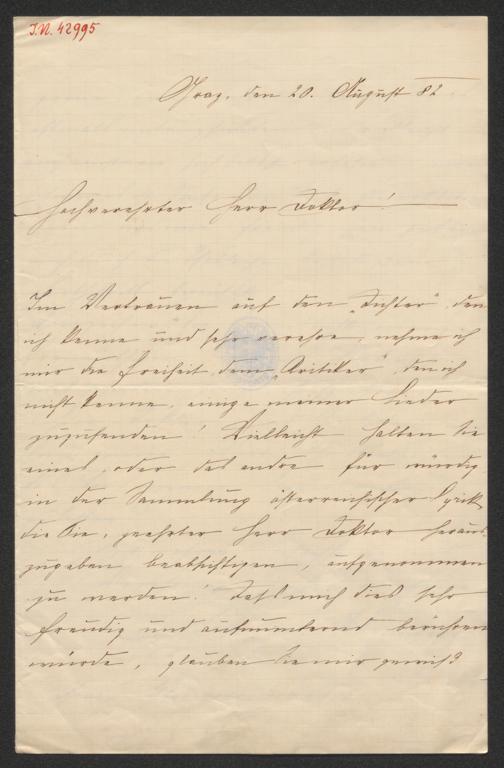 J.N. 42995
Graz, den 20. August 82
Hochverehrter Herr Doktor!
Im Vertrauen auf den „Dichter“, den
ich kenne und sehr verehre, nehme ich
mir die Freiheit, dem „Kritiker“, den ich
nicht kenne, einige meiner Lieder
zuzusenden! Vielleicht halten Sie
eines, oder das andre für würdig
in der Sammlung österreichischer Lyrik
die Sie, geehrter Herr Doktor heraus-
zugeben beabsichtigen, aufgenommen
zu werden! Daß mich dies sehr
freudig und aufmunternd berühren
würde, glauben Sie mir gewiß?